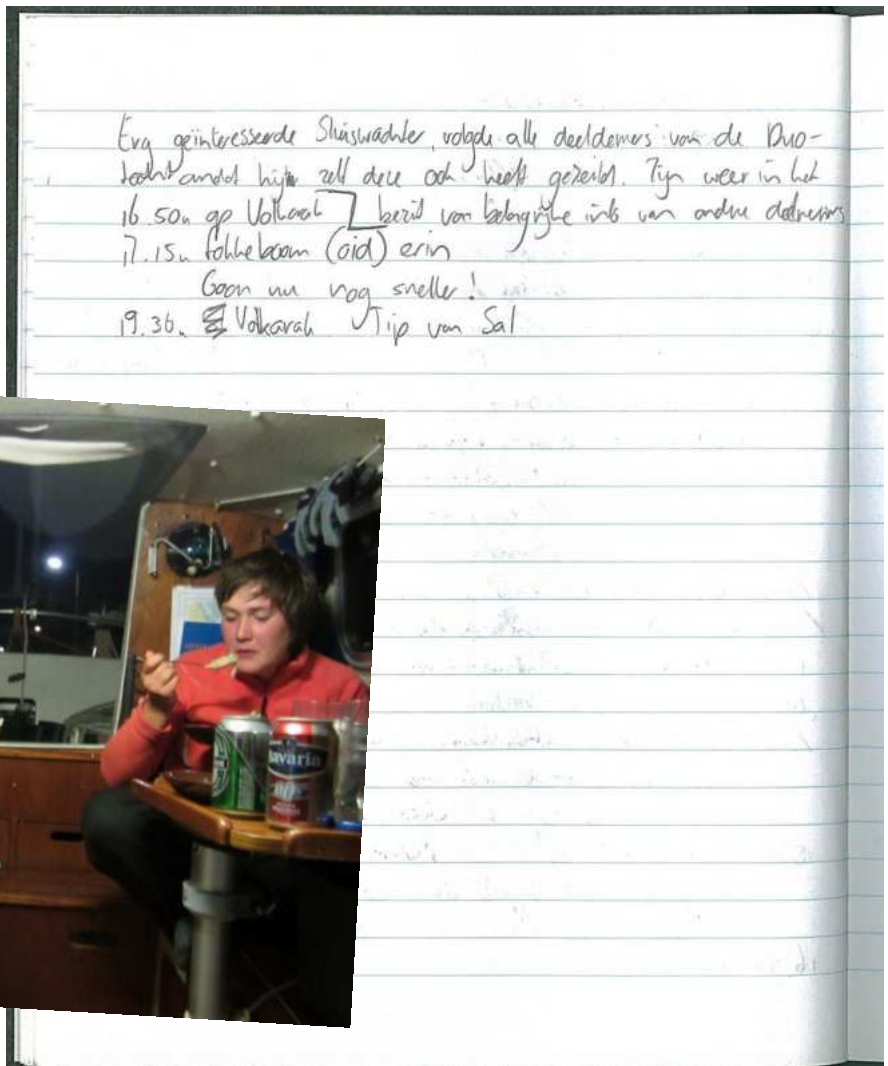 Erg geïnteresseerde Sluiswachter, volgde alle deelnemers van de Duo-
tocht omdat hij zelf deze ook heeft gezeild. Zijn weer in het
16.50u op Volkerak bezit van belangrijke info van andere deelnemers
17.15u fokkeboom (oid) erin
Gaan nu nog sneller!
19.36. Volkarak Tip van Sal
Bavaria